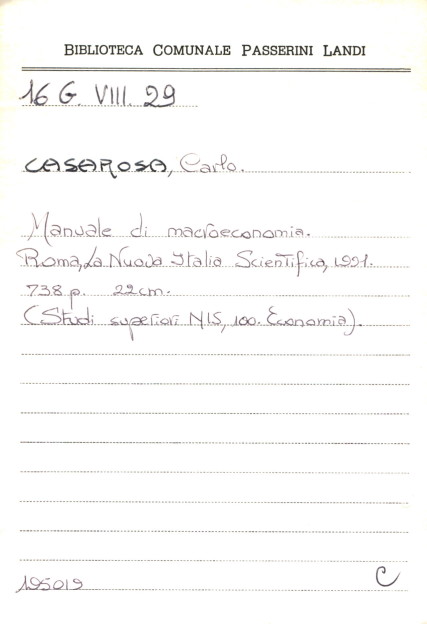 BIBLIOTECA COMUNALE PASSERINI LANDI
16 G. VIII. 29
CASAROSA, Carlo.
Manuale di macroeconomia.
Roma, La Nuova Italia Scientifica, 1991.
738 p. 22 cm.
(Studi superiori NIS, 100. Economia).
195019 C